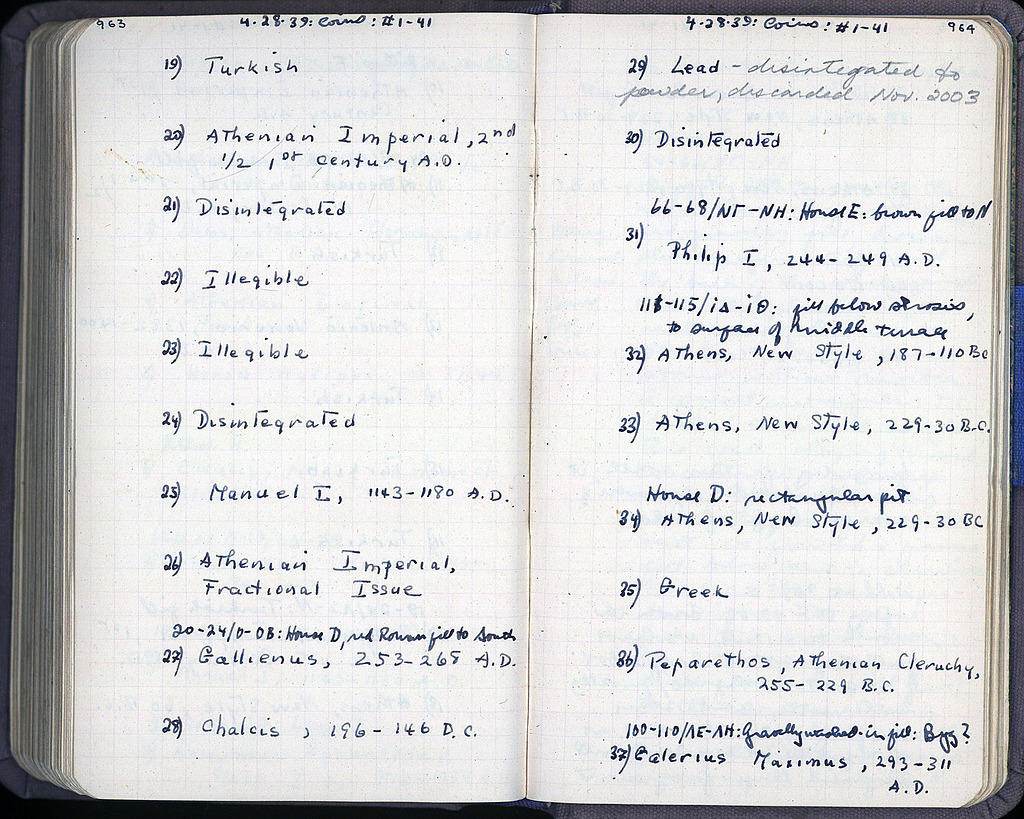 963 4-28-39: Coins: #1-41
19) Turkish
20) Athenian Imperial, 2nd
1/2 1st Century A.D.
21) Disintegrated
22) Illegible
23) Illegible
24) Disintegrated
25) Manuel I, 1143-1180 A.D.
26) Athenian Imperial,
Fractional Issue
20-24/Θ-ΘB: House D, red Roman fill to South
27) Gallienus, 253-268 A.D.
28) Chalcis, 196-146 B.C.
4-28-39: Coins: #1-41 964
29) Lead - disintegrated to
powder, discarded Nov. 2003
30) Disintegrated
66-68/NΓ-NH: House E: brown fill to N
31)
Philip I, 244-249 A.D.
-115/ΙΔ-ΙΘ: fill below stosis,
to surface of middle terrace
32) Athens, New Style, 187-110 BC
33) Athens, New Style, 229-30 B.C.
House D: rectangular pit
34) Athens, New Style, 229-30 BC
35) Greek
36) Peparethos, Athenian Cleruchy,
255-229 B.C.
100-110/ΛΕ-ΛΗ: Gravelly washed-in fill: Byz?
37) Galerius Maximus, 293-311
A.D.